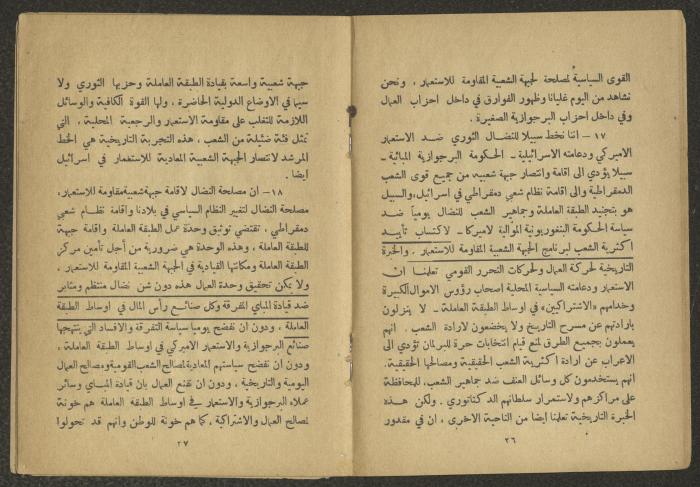 القوى السياسية لمصلحة لجبهة الشعبية المقاومة للاستعمار ، ونحن
نشاهد من اليوم غليانا وظهور الفوارق في داخل احزاب العمال
وفي داخل احزاب البرجوازية الصغيرة .
١٧ – اننا نخط سبيلا للنضال الثوري ضد الاستعمار
الاميركي ودعامته الاسرائيلية – الحكومة البرجوازية المبائية –
سبيلا يؤدي الى اقامة وانتصار جبهة شعبيه من جميع قوى الشعب
الدمقراطية والى اقامة نظام شعبي دمقراطي في اسرائيل ، والسبيل
هو بتجنيد الطبقة العاملة وجماهير الشعب للنضال يومياً ضد
سياسة الحكومة البنغوريونية الموالية لاميركا – لاكتساب تأييد
اكثرية الشعب لبرنامج الجبهة الشعبية المقاومة للاستعمار . والخبرة
التاريخية لحركة العمال ولحركات التحرر القومي تعلمنا ان
الاستعمار ودعامته السياسية المحلية اصحاب رؤوس الاموال الكبيرة
وخدامهم «الاشتراكيين» في اوساط الطبقة العاملة – لا ينزلون
بارادتهم عن مسرح التاريخ ولا يخضعون لارادة الشعب . انهم
يعملون بجميع الطرق لمنع قيام انتخابات حرة للبرلمان تؤدي الى
الاعراب عن ارادة اكثرية الشعب الحقيقية ومصالحها الحقيقية .
انهم يستخدمون كل وسائل العنف ضد جماهير الشعب ، للمحافظة
على مراكزهم ولاستمرار سلطانهم الدكتاتوري . ولكن هذه
الخبرة التاريخية تعلمنا ايضا من الناحية الاخرى ، ان في مقدور
٢٦
جبهة شعبية واسعة بقيادة الطبقة العاملة وحزبها الثوري ولا
سيما في الاوضاع الدولية الحاضرة ، ولها القوة الكافية والوسائل
اللازمة للتغلب على مقاومة الاستعمار والرجعية المحلية ، التي
تمثل فئة ضئيلة من الشعب ، هذه التجربة التاريخية هي الخط
المرشد لانتصار الجبهة الشعبية المعادية للاستعمار في اسرائيل
ايضا .
١٨ – ان مصلحة النضال لاقامة جبهة شعبية مقاومة للاستعمار ،
مصلحة النضال لتغيير النظام السياسي في بلادنا واقامة نظام شعبي
دمقراطي ، تقتضي توثيق وحدة عمل الطبقة العاملة واقامة جبهة
للطبقة العاملة ، وهذه الوحدة هي ضرورية من أجل تأمين مركز
الطبقة العاملة ومكانتها القيادية في الجبهة الشعبية المقاومة للاستعمار .
ولا يمكن تحقيق وحدة العمال هذه دون شن نضال منتظم ومثابر
ضد قيادة المباي المفرقة وكل صنائع رأس المال في اوساط الطبقة
العاملة ، ودون ان نفضح يوميا سياسة التفرقة والافساد التي ينتهجها
صنائع البرجوازية والاستعمار الاميركي في اوساط الطبقة العاملة .
ودون ان نفضح سياستهم المعادية لمصالح الشعب القومية ومصالح العمال
اليومية والتاريخية ، ودون ان نقنع العمال بان قيادة المباي وسائر
عملاء البرجوازية والاستعمار في اوساط الطبقة العاملة هم خونة
لصالح العمال والاشتراكية ، كما هم خونة للوطن وانهم قد تحولوا
٢٧